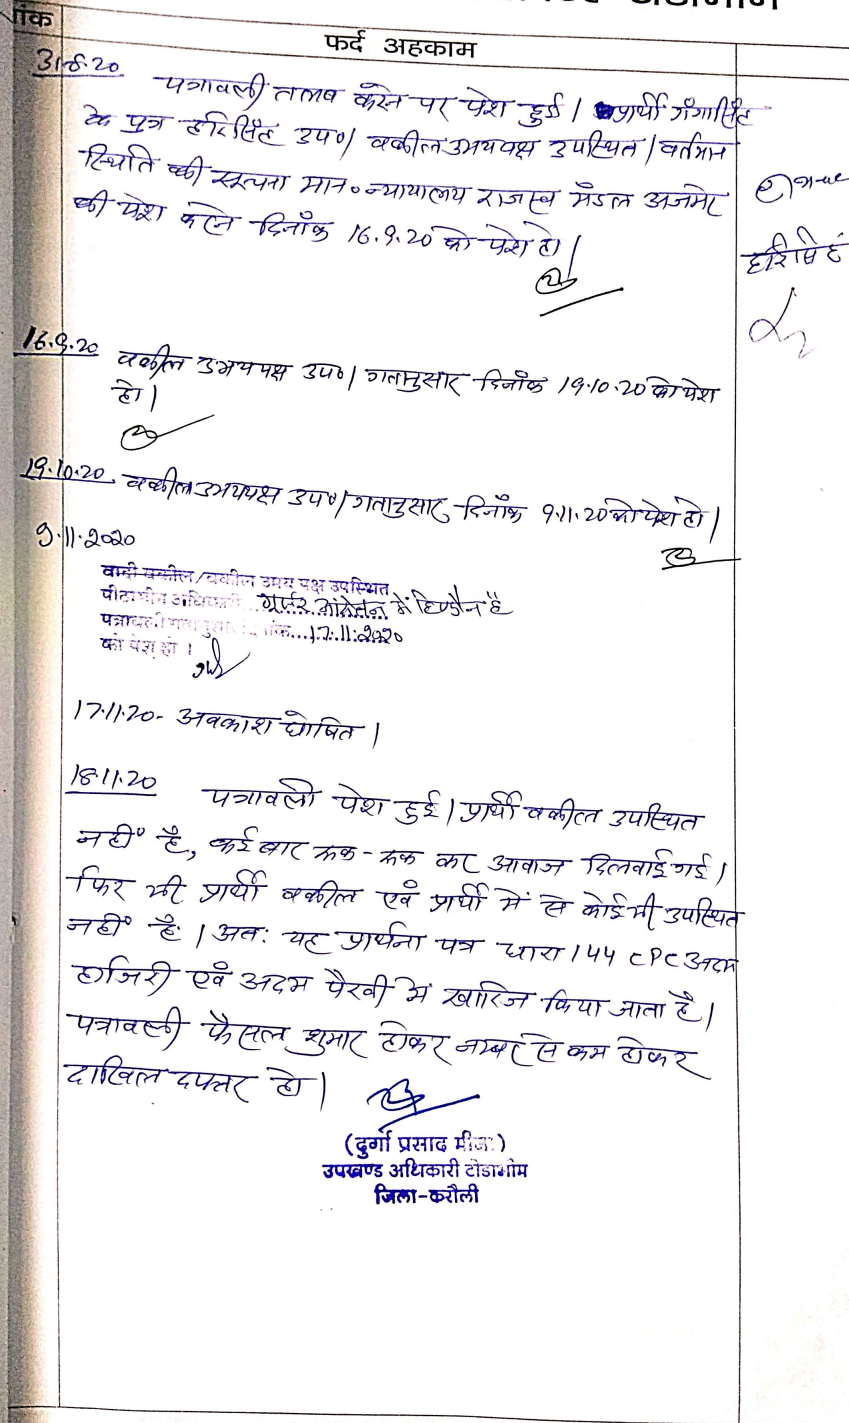 ांक
फर्द अहकाम
31.8.20
पत्रावली तलब करने पर पेश हुई। प्रार्थी गंगासिंह
के पुत्र हरिसिंह उप०। वकील उभयपक्ष उपस्थित। वर्तमान
स्थिति की सूचना मान० न्यायालय राजस्व मंडल अजमेर
की पेश करने दिनाँक 16.9.20 को पेश हो।
हरिसिंह
16.9.20 वकील उभयपक्ष उप०। गतानुसार दिनाँक 19.10.20 को पेश
हो।
19.10.20 वकील उभयपक्ष उप०। गतानुसार दिनाँक 9.11.20 को पेश हो।
9.11.2020
वादी वकील/वकील उभय पक्ष उपस्थित
पीठासीन अधिकारी गुर्जर आंदोलन में हिण्डौन है
पत्रावली गतानुसार दिनांक...17.11.2020
को पेश हो।
17.11.20- अवकाश घोषित।
18.11.20
पत्रावली पेश हुई। प्रार्थी वकील उपस्थित
नहीं है, कई बार रूक-रूक कर आवाज दिलवाई गई।
फिर भी प्रार्थी वकील एवं प्रार्थी में से कोई भी उपस्थित
नहीं है। अतः यह प्रार्थना पत्र धारा 144 CPC अदम
हाजिरी एवं अदम पैरवी में खारिज किया जाता है।
पत्रावली फैसल शुमार होकर नम्बर से कम होकर
दाखिल दफ्तर हो।
(दुर्गा प्रसाद मीना)
उपखण्ड अधिकारी टोडाभीम
जिला-करौली